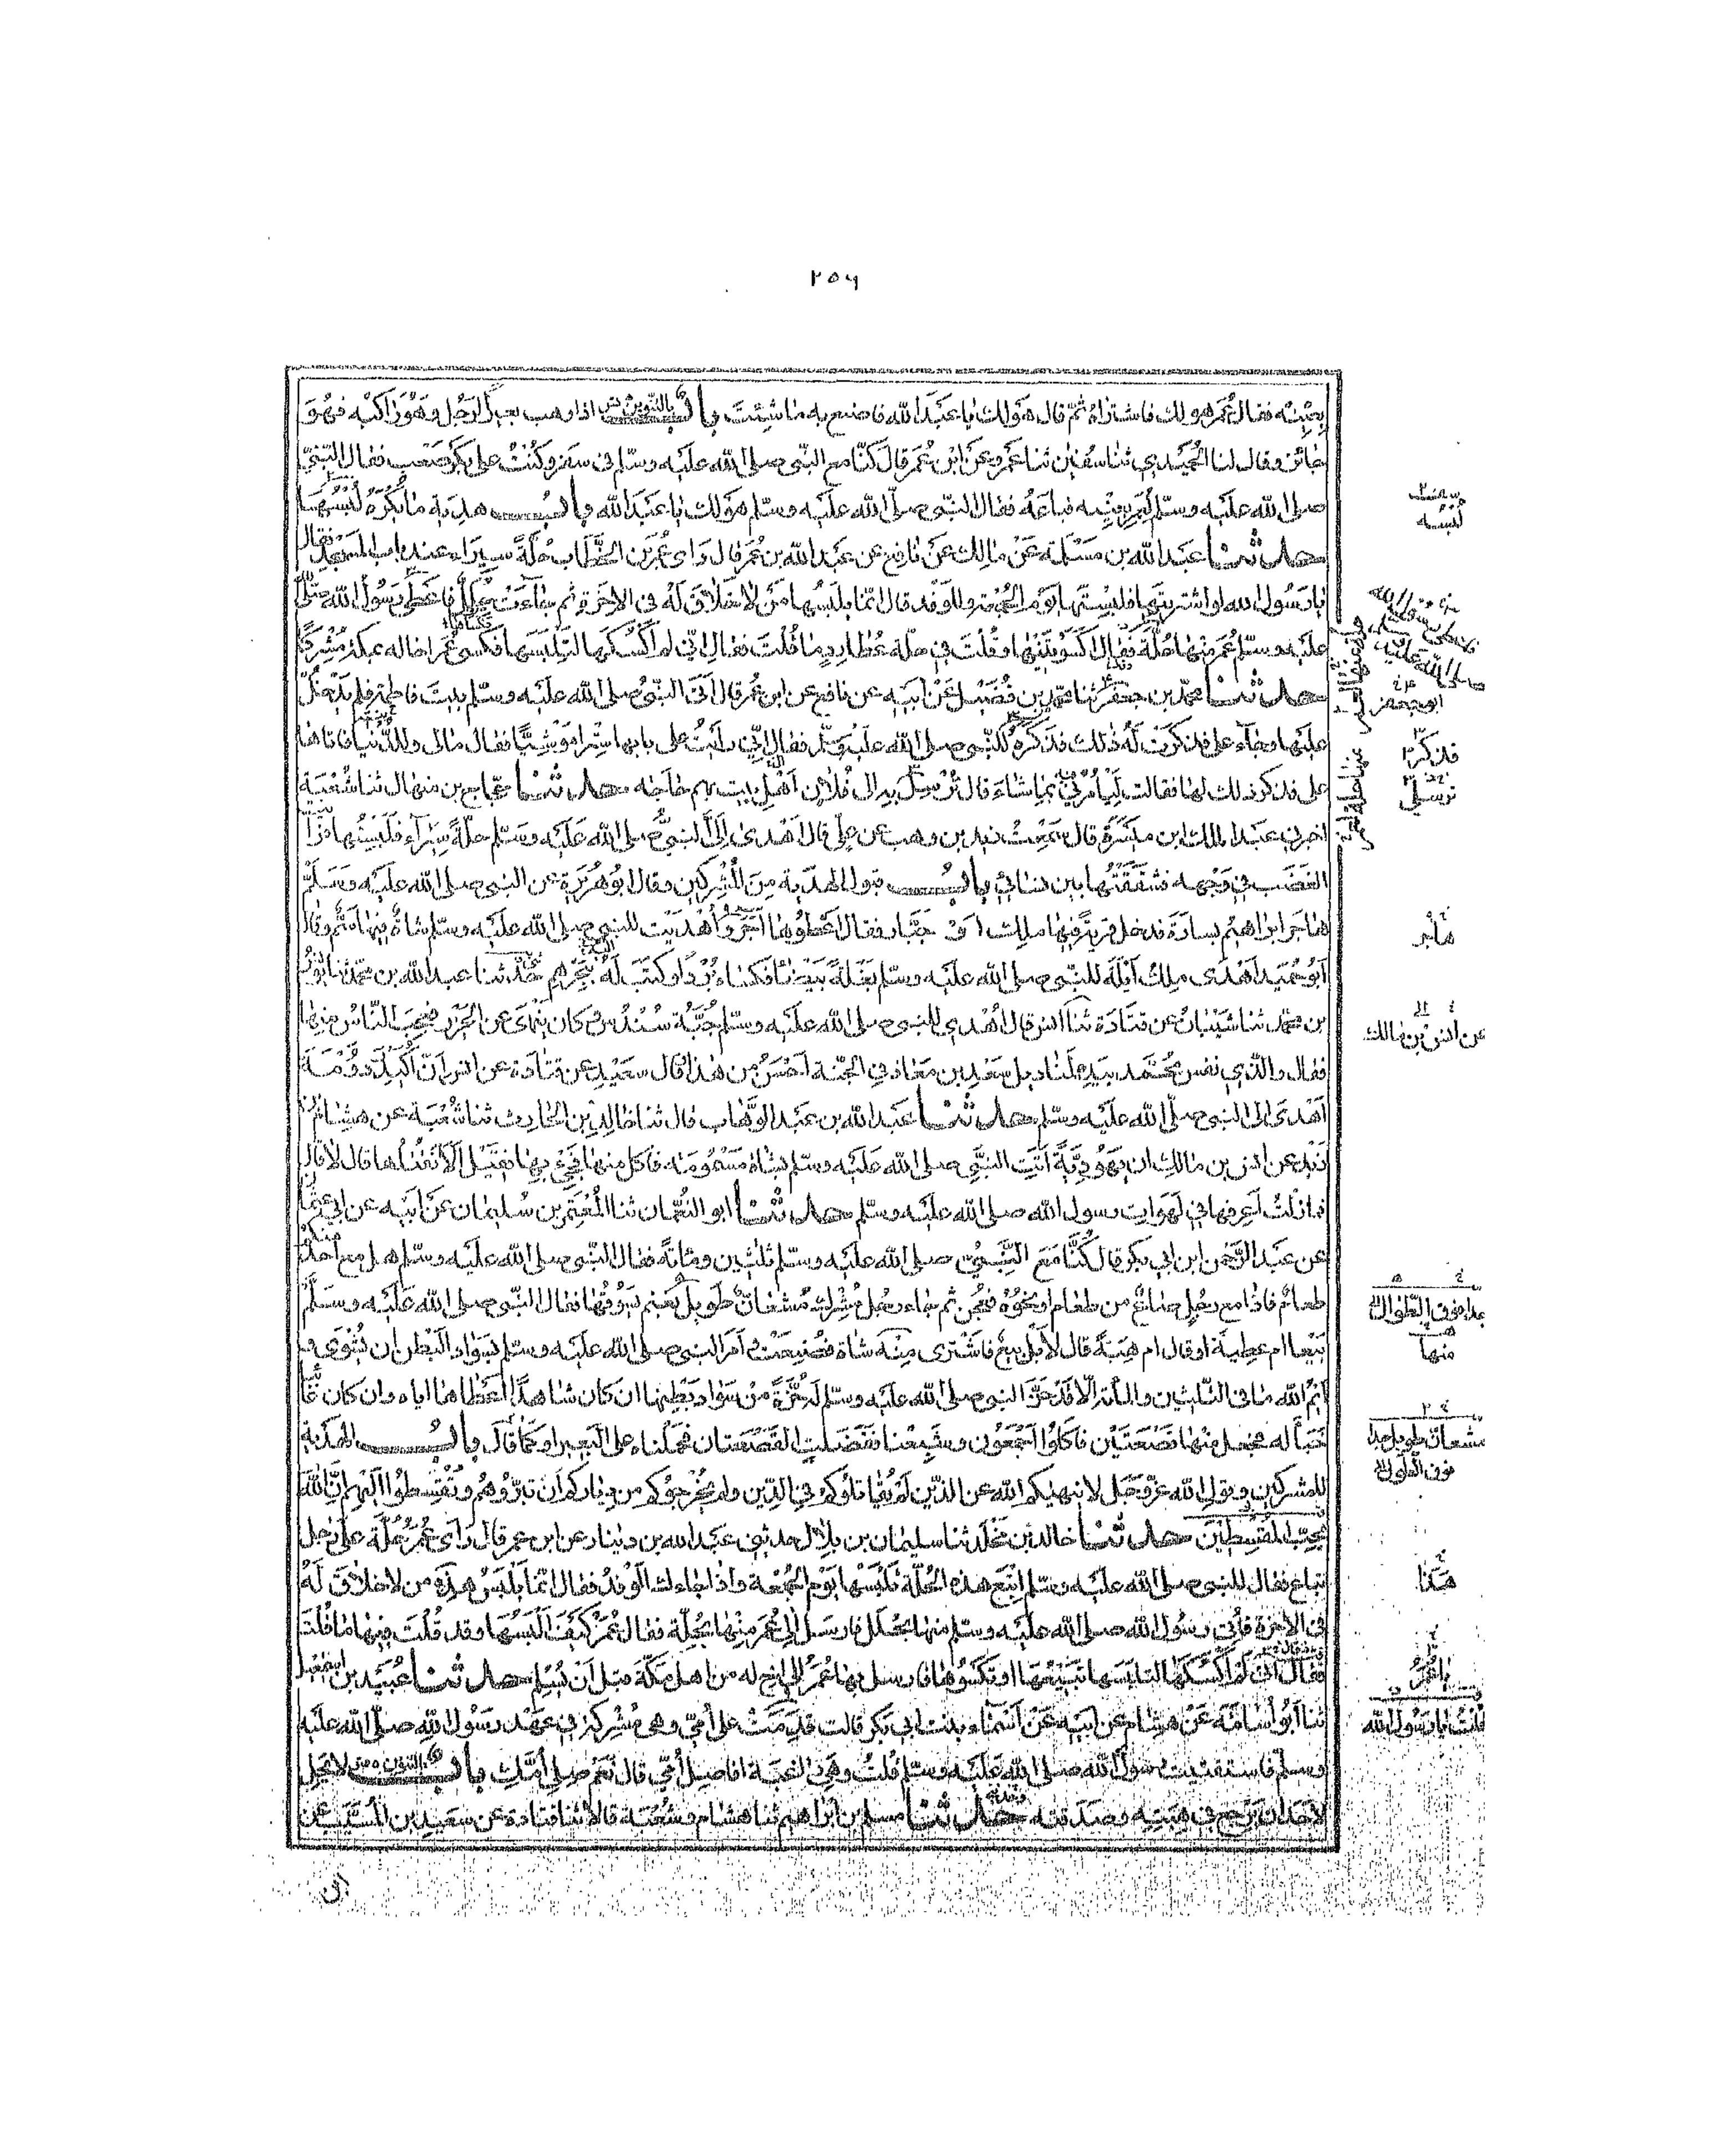 ٢٥٦
بعنيه فقال عمر هو لك فاشتراه ثم قال هو لك يا عبد الله فاصنع به ما شئت باب بالتنوين اذا وهب بعيرا لرجل وهو راكبه فهو
جائز وقال لنا الحميدي ثنا سفيان ثنا عمرو عن ابن عمر قال كنا مع النبي صلى الله عليه وسلم في سفر وكنت على بكر صعب فقال النبي
صلى الله عليه وسلم لعمر بعنيه فباعه فقال النبي صلى الله عليه وسلم هو لك يا عبد الله باب هدية ما يكره لبسها
حدثنا عبد الله بن مسلمة عن مالك عن نافع عن عبد الله بن عمر قال راى عمر بن الخطاب حلة سيراء عند باب المسجد فقال
يا رسول الله لو اشتريتها فلبستها يوم الجمعة وللوفد قال انما يلبسها من لا خلاق له في الاخرة ثم جاءت حلل فاعطى رسول الله صلى
عليه وسلم عمر منها حلة فقال اكسوتنيها وقلت في حلة عطارد ما قلت فقال اني لم اكسكها لتلبسها فكسى عمر اخا له بمكة مشركا
حدثنا محمد بن جعفر ثنا محمد بن فضيل عن ابيه عن نافع عن ابن عمر قال اتى النبي صلى الله عليه وسلم بيت فاطمة فلم يدخل
عليها وجاء علي فذكرت له ذلك فذكره للنبي صلى الله عليه وسلم فقال اني رايت على بابها سترا موشيا فقال مالي وللدنيا فاتاها
علي فذكر ذلك لها فقالت ليأمرني بما شاء قال ترسل به الى فلان اهل بيت بهم حاجه حدثنا حجاج بن منهال ثنا شعبة
اخبرني عبد الملك ابن ميسرة قال سمعت زيد بن وهب عن علي قال اهدى الي النبي صلى الله عليه وسلم حلة سيراء فلبستها فرأيت
الغضب في وجهه فشققتها بين نسائي باب قبول الهدية من المشركين وقال ابو هريرة عن النبي صلى الله عليه وسلم
هاجر ابراهيم بسارة فدخل قرية فيها ملك او جبار فقال اعطوها آجر واهديت للنبي صلى الله عليه وسلم شاة فيها سم وقال
ابو حميد اهدى ملك ايلة للنبي صلى الله عليه وسلم بغلة بيضاء فكساه بردا وكتب له ببحرهم حدثنا عبد الله بن محمد ثنا يونس
بن محمد ثنا شيبان عن قتادة ثنا انس قال اهدي للنبي صلى الله عليه وسلم جبة سندس وكان ينهى عن الحرير فعجب الناس منها
فقال والذي نفس محمد بيده لمناديل سعد بن معاذ في الجنة احسن من هذا وقال سعيد عن قتادة عن انس ان اكيدر دومة
اهدى الى النبي صلى الله عليه وسلم حدثنا عبد الله بن عبد الوهاب قال ثنا خالد بن الحارث ثنا شعبة عن هشام بن
زيد عن انس بن مالك ان يهودية اتت النبي صلى الله عليه وسلم بشاة مسمومة فاكل منها فجيء بها فقيل الا نقتلها قال لا قال
فما زلت اعرفها في لهوات رسول الله صلى الله عليه وسلم حدثنا ابو النعمان ثنا المعتمر بن سليمان عن ابيه عن ابي عثمان
عن عبد الرحمن ابن ابي بكر قال كنا مع النبي صلى الله عليه وسلم ثلثين ومائة فقال النبي صلى الله عليه وسلم هل مع احد منكم
طعام فاذا مع رجل صاع من طعام او نحوه فعجن ثم جاء رجل مشرك مشعان طويل بغنم يسوقها فقال النبي صلى الله عليه وسلم
بيعا ام عطية او قال ام هبة قال لا بل بيع فاشترى منه شاة فصنعت وامر النبي صلى الله عليه وسلم بسواد البطن ان يشوى و
ايم الله ما في الثلثين والمائة الا قد حز النبي صلى الله عليه وسلم له حزة من سواد بطنها ان كان شاهدا اعطاها اياه وان كان غائبا
خبأ له فجعل منها قصعتين فاكلوا اجمعون وشبعنا ففضلت القصعتان فحملناه على البعير او كما قال باب الهدية
للمشركين وقول الله عز وجل لا ينهيكم الله عن الذين لم يقاتلوكم في الدين ولم يخرجوكم من دياركم ان تبروهم وتقسطوا اليهم ان الله
يحب المقسطين حدثنا خالد بن مخلد ثنا سليمان بن بلال حدثني عبد الله بن دينار عن ابن عمر قال راى عمر حلة على رجل
تباع فقال للنبي صلى الله عليه وسلم ابتع هذه الحلة تلبسها يوم الجمعة واذا جاءك الوفد فقال انما يلبس هذه من لا خلاق له
في الاخرة فأتي رسول الله صلى الله عليه وسلم منها بحلل فارسل الى عمر منها بحلة فقال عمر كيف البسها وقد قلت فيها ما قلت
فقال اني لم اكسكها لتلبسها تبيعها او تكسوها فارسل بها عمر الى اخ له من اهل مكة قبل ان يسلم حدثنا عبيد بن اسمعيل
ثنا ابو اسامة عن هشام عن ابيه عن اسماء بنت ابي بكر قالت قدمت علي امي وهي مشركة في عهد رسول الله صلى الله عليه
وسلم فاستفتيت رسول الله صلى الله عليه وسلم قلت وهي راغبة افاصل امي قال نعم صلي امك باب بالتنوين لا يحل
لاحد ان يرجع في هبته وصدقته حدثنا مسلم بن ابراهيم ثنا هشام وشعبة قالا ثنا قتادة عن سعيد بن المسيب عن
لبسه
ابو جعفر
فذكر
ترسلي
هاجر
عن انس بن مالك
منها
مشعان طويل جدا
فوق الطول
هذا
قلت يا رسول الله